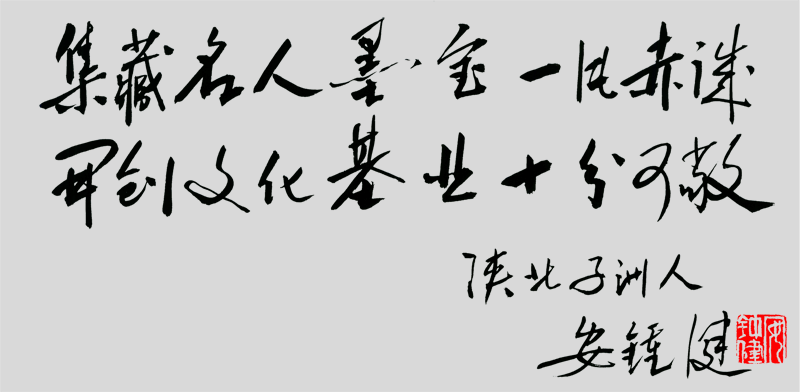 集藏名人墨宝一片赤诚
开创文化基业十分可敬
陕北子洲人
安锺健